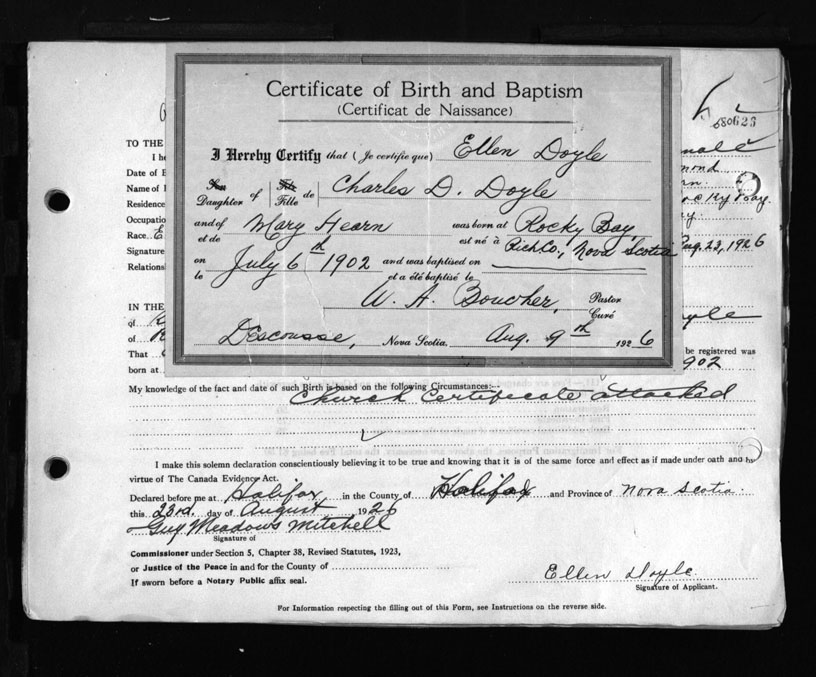 Certificate of Birth and Baptism
(Certificat de Naissance)
I Hereby Certify that (Je certifie que) Ellen Doyle
Son Fils
Daughter of Fille de Charles D. Doyle
and of Mary Hearn was born at Rocky Bay,
et de est né à Rich Co., Nova Scotia
on July 6th 1902 and was baptised on
le et a été baptisé le
W. A. Boucher, Pastor
Curé
Descousse, Nova Scotia. Aug. 9th 1926
680623
TO THE
I he
Date of B
Name of
Residence
Occupatio
Race E
Signature Aug. 23, 1926
Relations
IN THE
of
of
That be registered was
born at 902
My knowledge of the fact and date of such Birth is based on the following Circumstances:—
Church Certificate attached
I make this solemn declaration conscientiously believing it to be true and knowing that it is of the same force and effect as if made under oath and by
virtue of The Canada Evidence Act.
Declared before me at Halifax, in the County of Halifax and Province of Nova Scotia.
this 23rd. day of August 1926
Guy Meadows Mitchell
Signature of
Commissioner under Section 5, Chapter 38, Revised Statutes, 1923,
or Justice of the Peace in and for the County of
If sworn before a Notary Public affix seal.
Ellen Doyle.
Signature of Applicant.
For Information respecting the filling out of this Form, see Instructions on the reverse side.